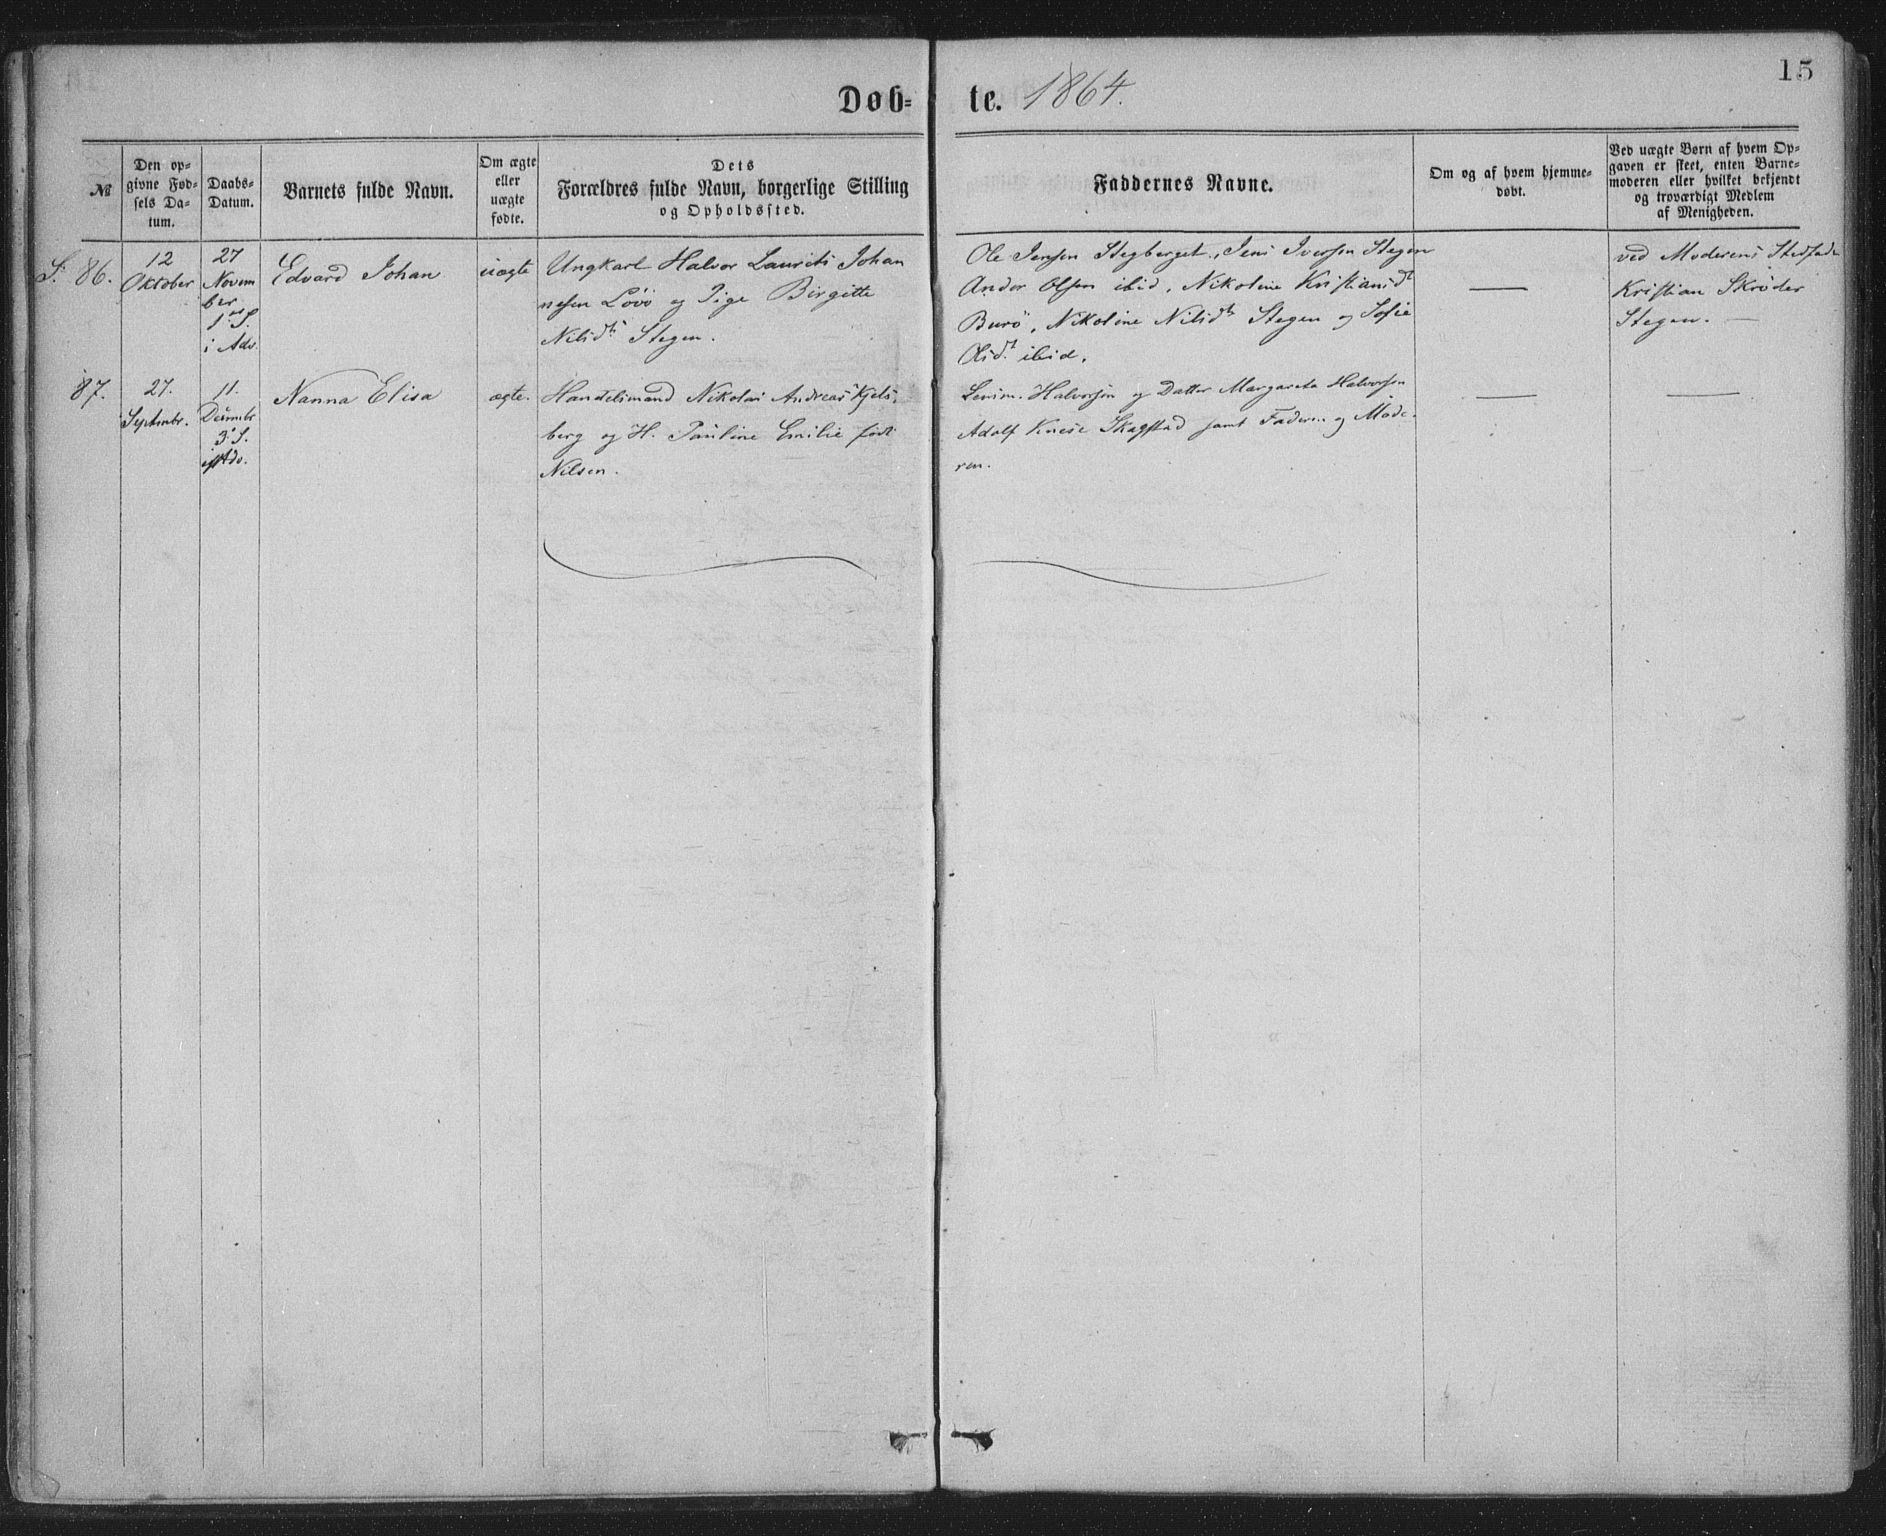 15
Døb-te. 1864.
№
Den op-
givne Fød-
sels Da-
tum.
Daabs-
Datum.
Barnets fulde Navn.
Om ægte
eller
uægte
fødte.
Dets
Forældres fulde Navn, borgerlige Stilling
og Opholdssted.
Faddernes Navne.
Om og af hvem hjemme-
døbt.
Ved uægte Børn af hvem Op-
gaven er skeet, enten Barne-
moderen eller hvilket bekjendt
og troværdigt Medlem
af Menigheden.
S. 86.
12
Oktober
27
Novem
ber
1ste S.
i Adv.
Edvard Johan
uægte
Ungkarl Halvor Laurits Johan
nesen Lövö og Pige Birgitte
Nilsdtr Stegen.
Ole Jensen Stegberget, Jens Iversen Stegen
Andor Olsen ibid, Nikoline Kristiansdt
Burö, Nikoline Nilsdtr Stegen og Sofie
Olsdt ibid.
—
ved Moderens Stedfader
Kristian Skrøder
Stegen. —
87.
27.
Septembr.
11.
Decembr.
3. S.
Adv.
Nanna Elisa
ægte.
Handelsmand Nikolai Andreas Kjels-
berg og H. Pauline Emilie född
Nilsen.
Lensm. Halvorsen og Datter Margareta Halvorsen
Adolf Skagstad samt Faderen og Mode-
ren.
—
—